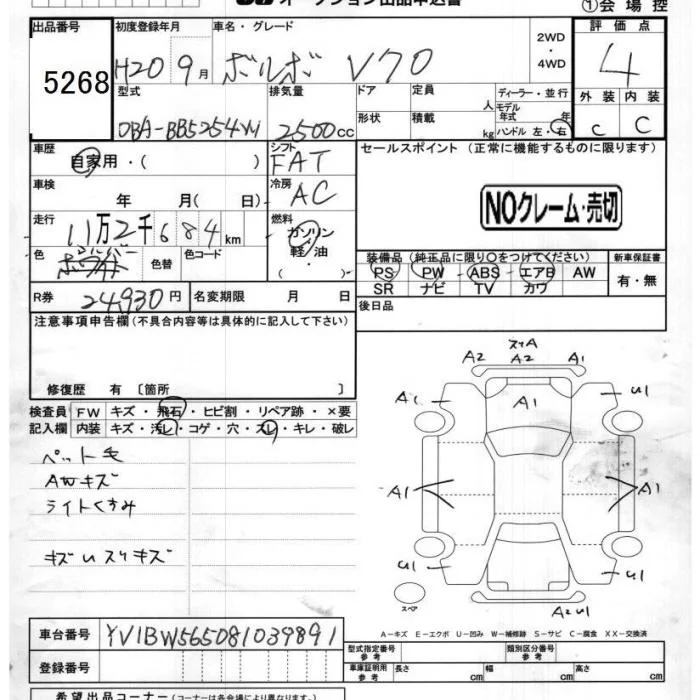 オークション出品申込書
①会場控
出品番号 初度登録年月 車名・グレード 評価点
5268 H20 9月 ボルボ V70 2WD・4WD 4
型式 排気量 ドア 定員 人 ディーラー・並行 外装 内装
DBA-BB5254W 2500cc 形状 積載 kg モデル年式 年 C C
ハンドル 左・右
車歴 シフト セールスポイント (正常に機能するものに限ります)
自家用・( ) FAT
車検 冷房 NOクレーム・売切
年 月( 日) AC
走行 11万2千684km 燃料
ガソリン・軽油
( )
色 シルバー 色替 色コード
装備品 (純正品に限り○をつけてください) 新車保証書
PS PW ABS エアB AW 有・無
SR ナビ TV カワ
R券 24,930円 名変期限 月 日 後日品
注意事項申告欄(不具合内容等は具体的に記入して下さい)
修復歴 有 〔箇所 〕
検査員 FW キズ・飛石・ヒビ割・リペア跡・×要
記入欄 内装 キズ・汚レ・コゲ・穴・スレ・キレ・破レ
ペット毛
AWキズ
ライトくすみ
キズUスリキズ
スリA
A2 A2 A1
A1 A1 U1
A1 A1
U1 U1
スペア A2 U1
A-キズ E-エクボ U-凹み W-補修跡 S-サビ C-腐食 XX-交換済
車台番号 YV1BW565081039891
登録番号
型式指定番号 参考 類別区分番号 参考
車庫証明用 参考 長さ cm 幅 cm 高さ cm
希望出品コーナー (コーナーは各会場により異なります。)